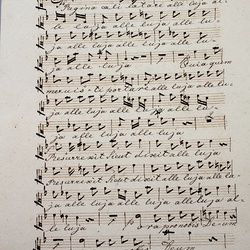 Regina cæli lætare alle luja al-
le luja alle luja alle lu-
ja alle luja alle luja alle lu-
ja alle luja Quia quem
meruisti portare alle luja alle lu-
ja alle luja alle luja
ja alle luja alle luja
Resurrexit sicut dixit alle luja
Resurrexit sicut dixit alle luja alle lu-
ja alle luja alle luja alle luja al-
le luja ora pro nobis Deum